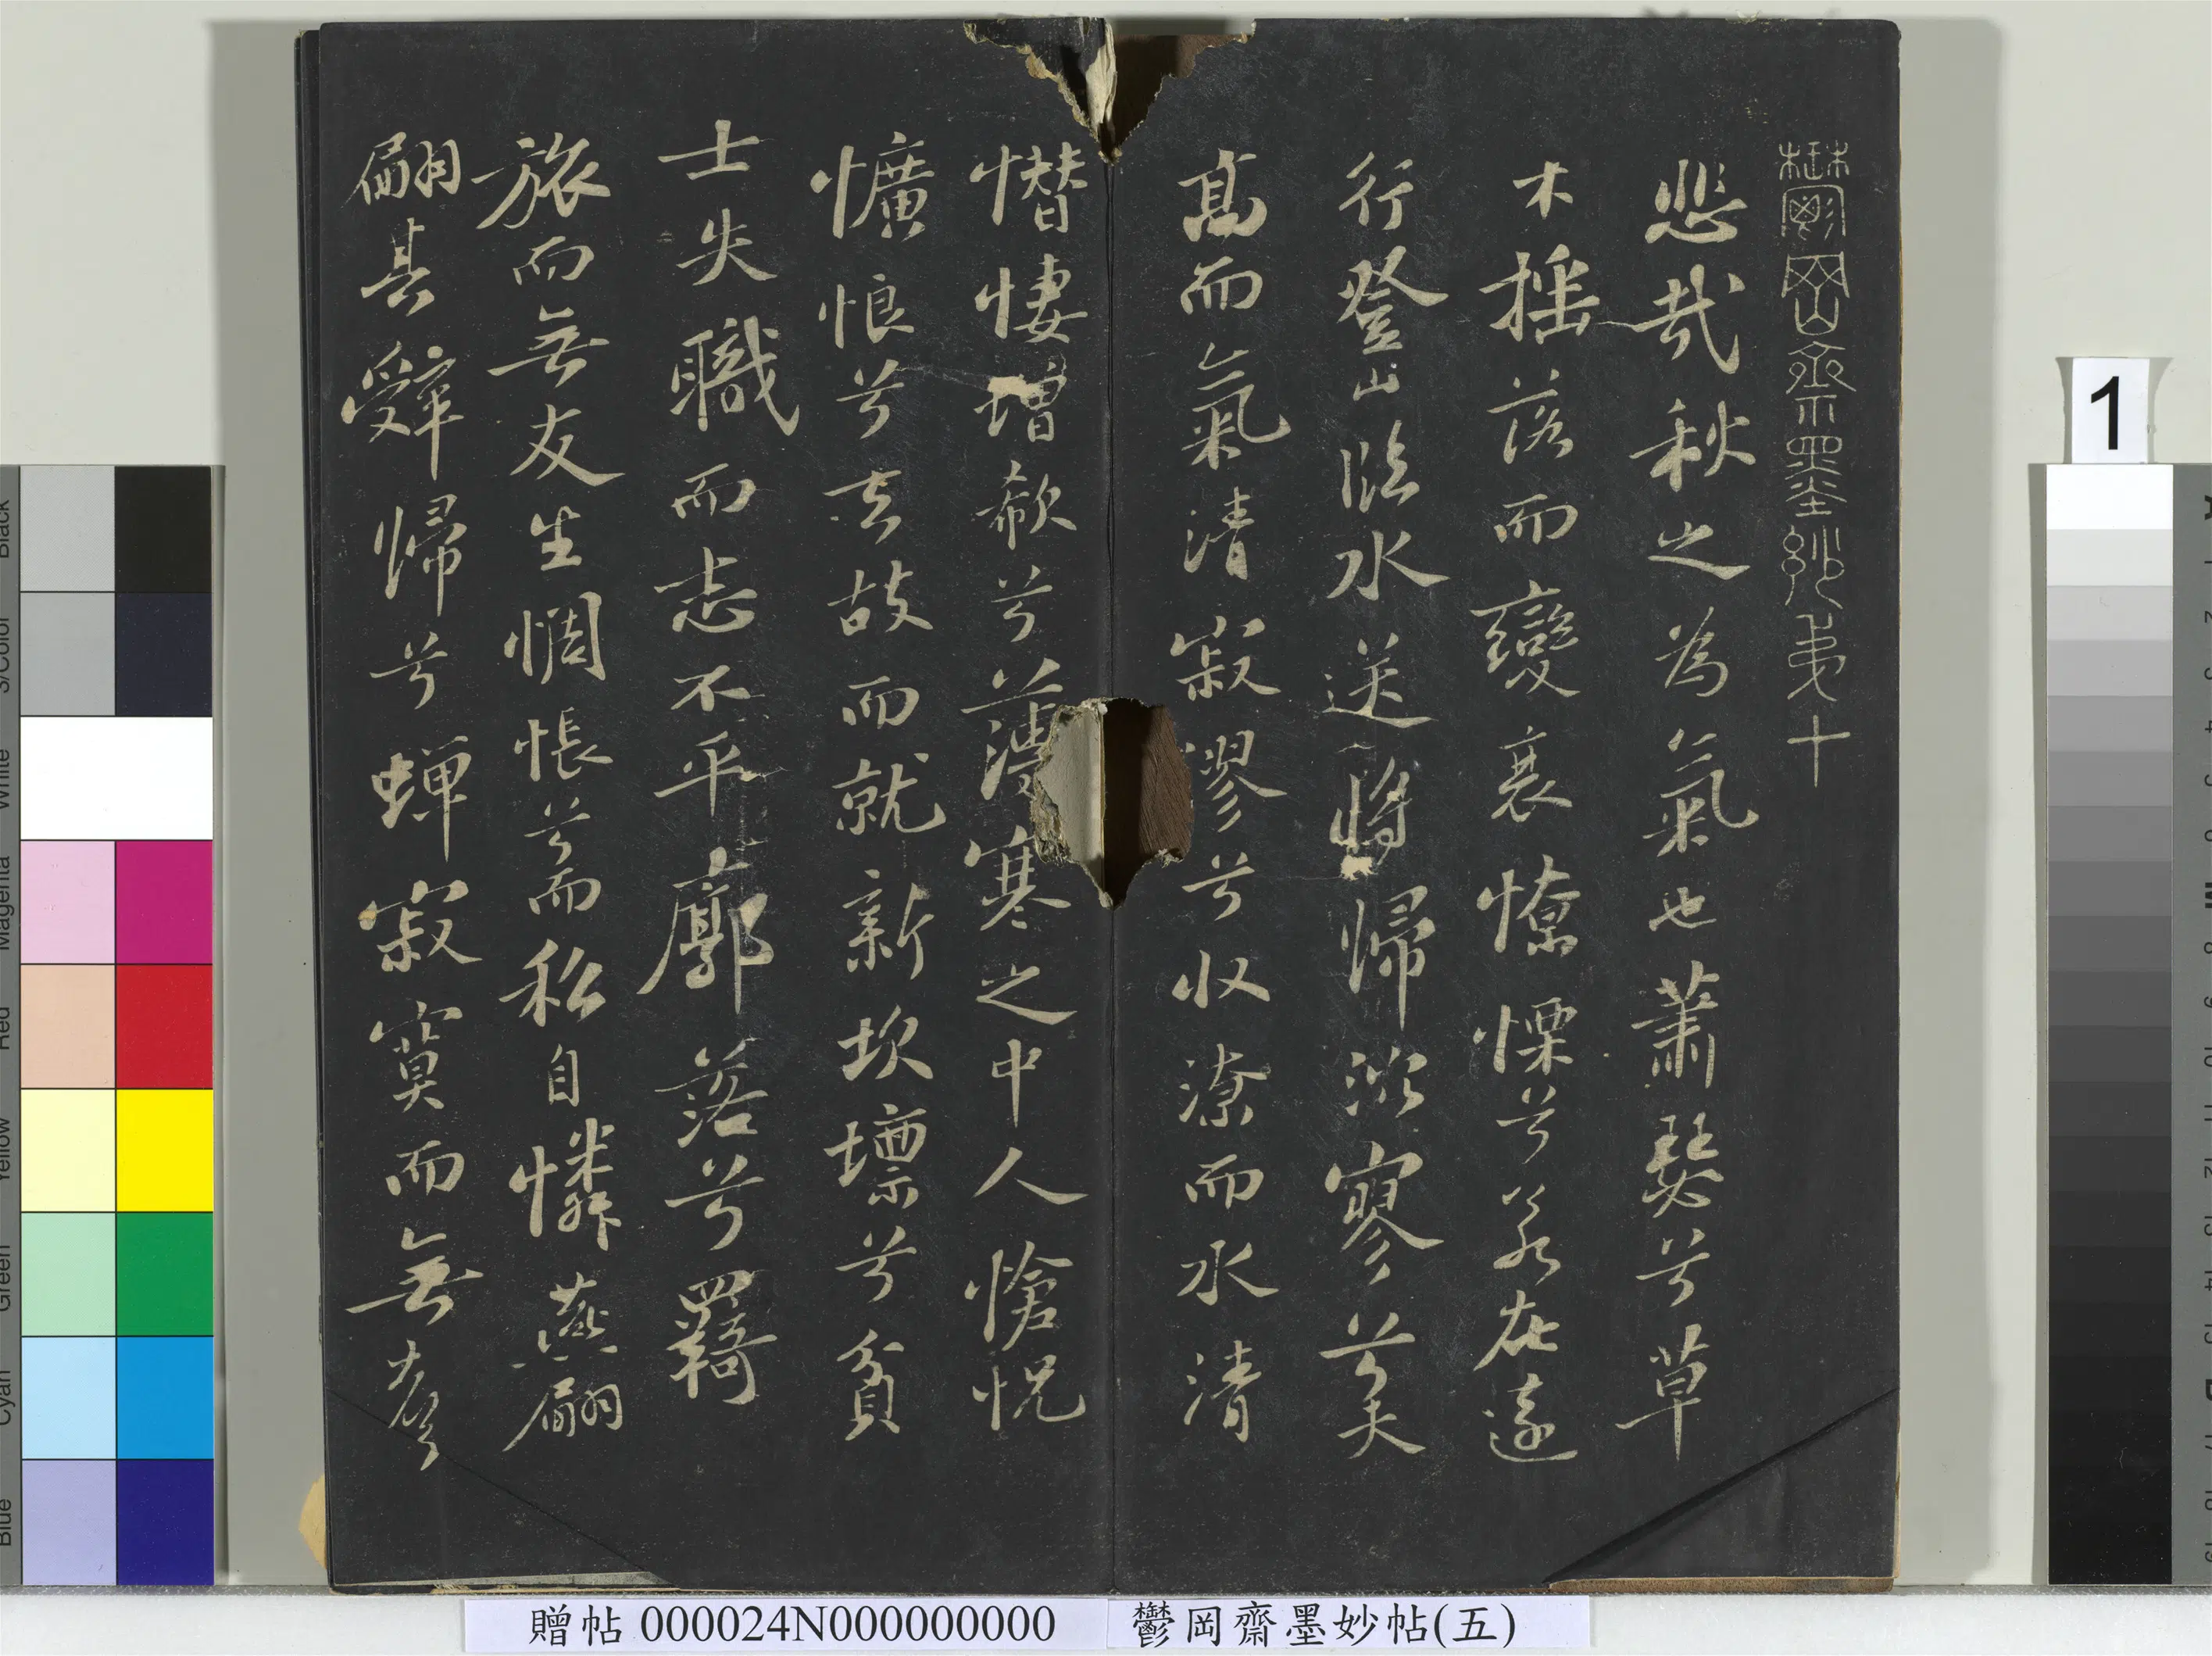 鬱岡齋墨妙第十
悲哉秋之為氣也蕭瑟兮草
木搖落而變衰憭慄兮若在遠
行登山臨水送將歸泬寥兮天
高而氣清寂漻兮収潦而水清
憯悽增欷兮薄寒之中人愴怳
懭悢兮去故而就新坎壈兮貧
士失職而志不平廓落兮羇
旅而無友生惆悵兮而私自憐燕翩
翩其辭歸兮蟬寂寞而無聲
贈帖 000024N000000000
鬱岡齋墨妙帖(五)
1